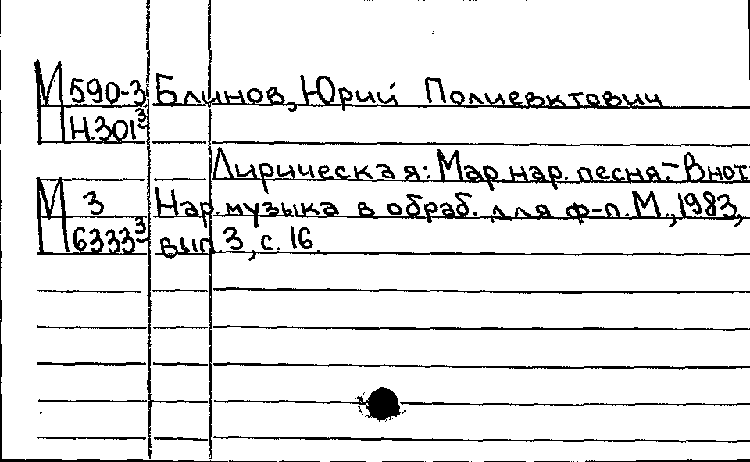 М 590-3 Блинов, Юрий Полиевктович
Н.301³
Лирическая: Мар. нар. песня. - В нот.
М 3 Нар. музыка в обраб. для ф-п. М., 1983,
6333³ вып. 3, с. 16.